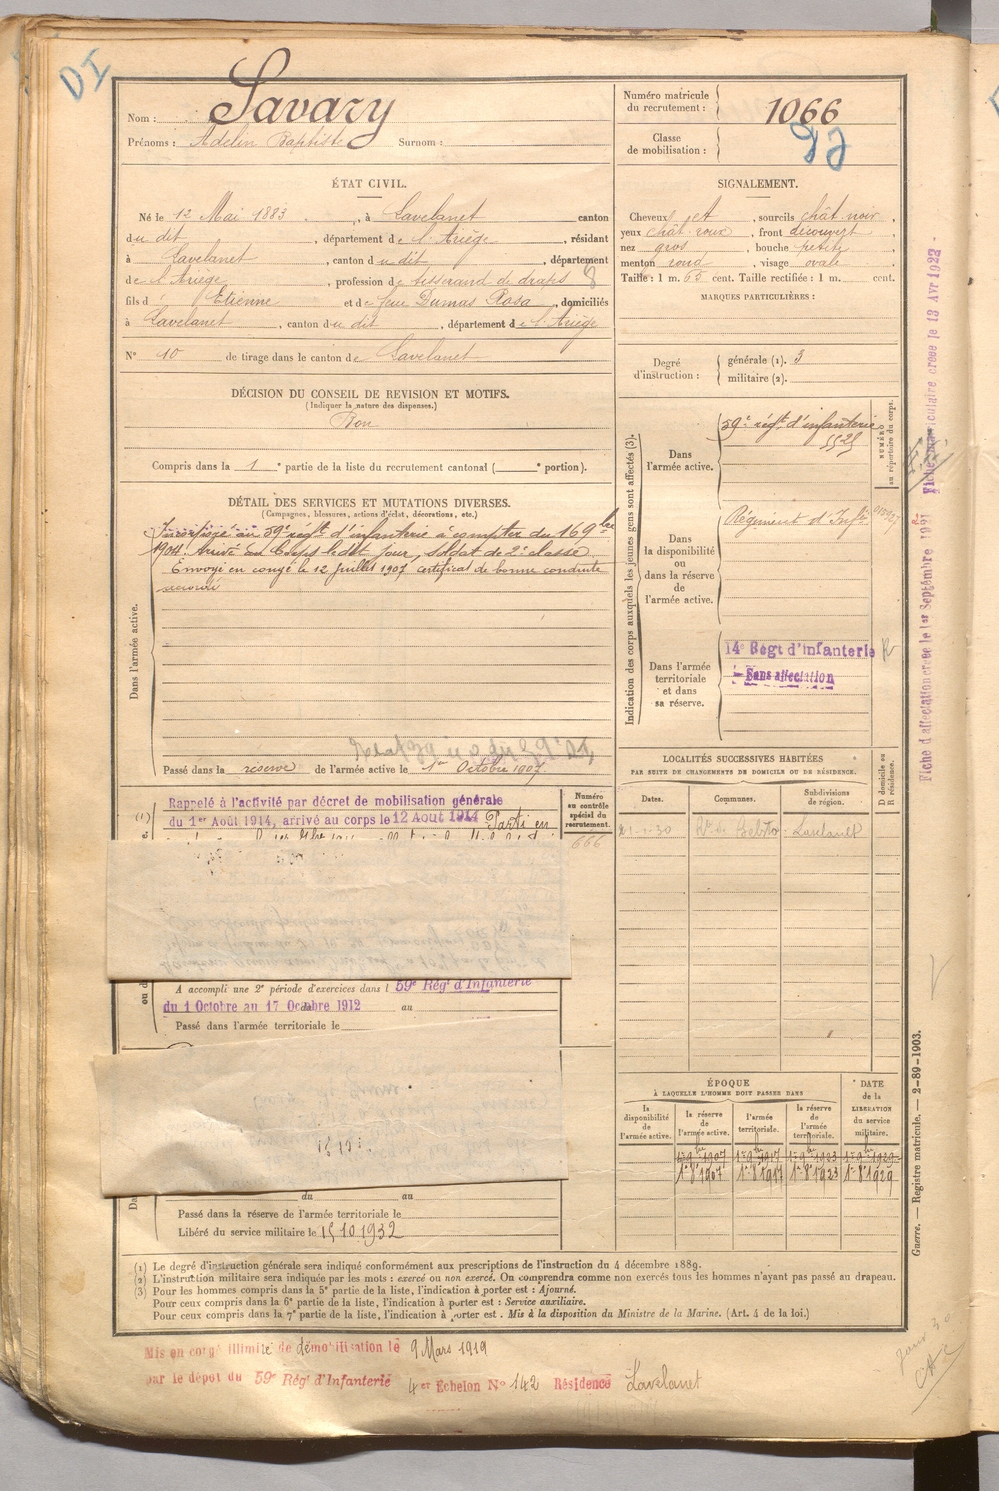 DI
Nom : Savary
Prénoms : Adelin Baptiste Surnom :
Numéro matricule du recrutement : 1066
Classe de mobilisation :
ÉTAT CIVIL.
Né le 12 Mai 1883, à Lavelanet canton
du dit, département de l'Ariège, résidant
à Lavelanet, canton du dit, département
de l'Ariège, profession de tisserand de draps 8
fils d' Etienne et de feue Dumas Rosa, domiciliés
à Lavelanet, canton du dit, département de l'Ariège
N° 10 de tirage dans le canton de Lavelanet
SIGNALEMENT.
Cheveux et, sourcils chât. noir,
yeux chât. roux, front découvert
nez gros, bouche petite
menton rond, visage ovale
Taille : 1 m. 65 cent. Taille rectifiée : 1 m. cent.
MARQUES PARTICULIÈRES :
Degré d'instruction : générale (1). 3
militaire (2).
DÉCISION DU CONSEIL DE REVISION ET MOTIFS.
(Indiquer la nature des dispenses.)
Bon
Compris dans la 1e partie de la liste du recrutement cantonal ( e portion).
DÉTAIL DES SERVICES ET MUTATIONS DIVERSES.
(Campagnes, blessures, actions d'éclat, décorations, etc.)
Dans l'armée active.
Incorporé au 59e régt d'infanterie à compter du 16 9bre
1904. Arrivé au Corps le dit jour, soldat de 2e classe
Envoyé en congé le 12 juillet 1907 certificat de bonne conduite
accordé
Passé dans la réserve de l'armée active le 1er Octobre 1907.
(1)
Rappelé à l'activité par décret de mobilisation générale
du 1er Août 1914, arrivé au corps le 12 Aout 1914 Parti en
Numéro au contrôle spécial du recrutement.
666
A accompli une 2e période d'exercices dans l 59e Rég. d'Infanterie
du 1 Octobre au 17 Octobre 1912 au
Passé dans l'armée territoriale le
du au
Passé dans la réserve de l'armée territoriale le
Libéré du service militaire le 15.10.1932
Indication des corps auxquels les jeunes gens sont affectés (3).
NUMÉRO au répertoire du corps.
Dans l'armée active.
59e régt d'infanterie
Dans la disponibilité ou dans la réserve de l'armée active.
Régiment d'Infie
Dans l'armée territoriale et dans sa réserve.
14e Régt d'infanterie
Sans affectation
LOCALITÉS SUCCESSIVES HABITÉES
PAR SUITE DE CHANGEMENTS DE DOMICILE OU DE RÉSIDENCE.
Dates. Communes. Subdivisions de région. D domicile ou R résidence.
ÉPOQUE
À LAQUELLE L'HOMME DOIT PASSER DANS
DATE de la LIBÉRATION du service militaire.
la disponibilité de l'armée active. la réserve de l'armée active. l'armée territoriale. la réserve de l'armée territoriale.
1er 9bre 1907 1er 9bre 1917 1er 9bre 1923 1er 9bre 1929
1er 8e 1907 1er 8e 1917 1er 8e 1923 1er 8e 1929
Fiche d'affectation créée le 1er Septembre 1921
Fiche matriculaire créée le 13 Avr 1922
Guerre. — Registre matricule. — 2-89-1903.
(1) Le degré d'instruction générale sera indiqué conformément aux prescriptions de l'instruction du 4 décembre 1889.
(2) L'instruction militaire sera indiquée par les mots : exercé ou non exercé. On comprendra comme non exercés tous les hommes n'ayant pas passé au drapeau.
(3) Pour les hommes compris dans la 5e partie de la liste, l'indication à porter est : Ajourné.
Pour ceux compris dans la 6e partie de la liste, l'indication à porter est : Service auxiliaire.
Pour ceux compris dans la 7e partie de la liste, l'indication à porter est : Mis à la disposition du Ministre de la Marine. (Art. 4 de la loi.)
Mis en congé illimité de démobilisation le 9 Mars 1919
par le dépôt du 59e Rég. d'Infanterie 4er Échelon N° 142 Résidence Lavelanet